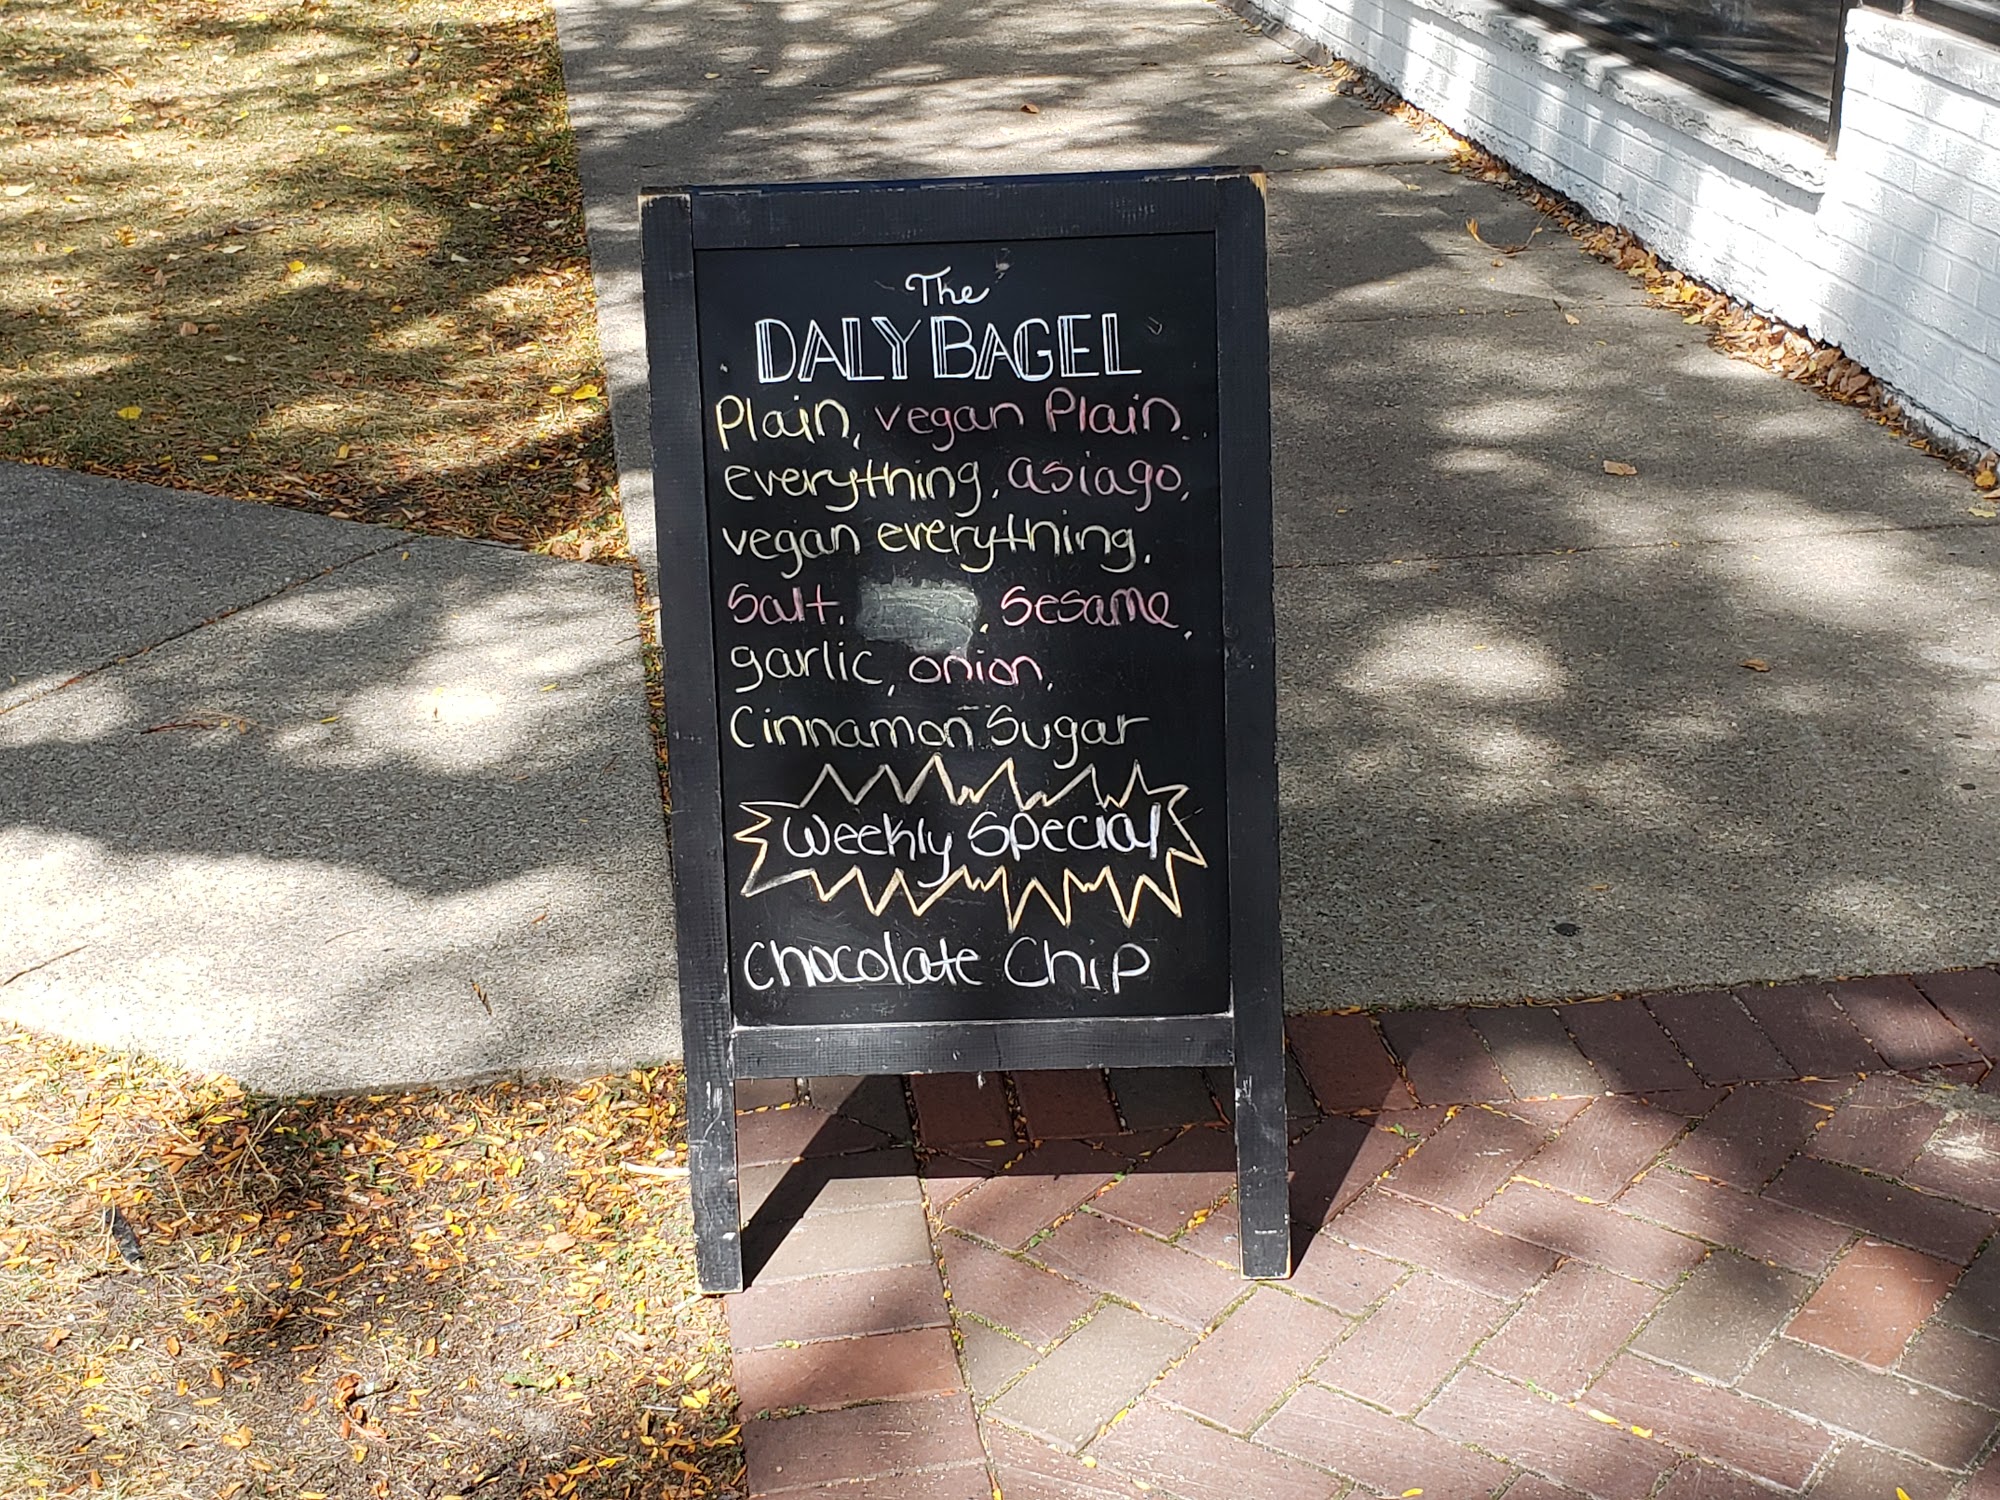 The
DALY BAGEL
Plain, vegan Plain,
everything, asiago,
vegan everything,
Salt, , Sesame,
garlic, onion,
Cinnamon Sugar
Weekly Special
Chocolate Chip